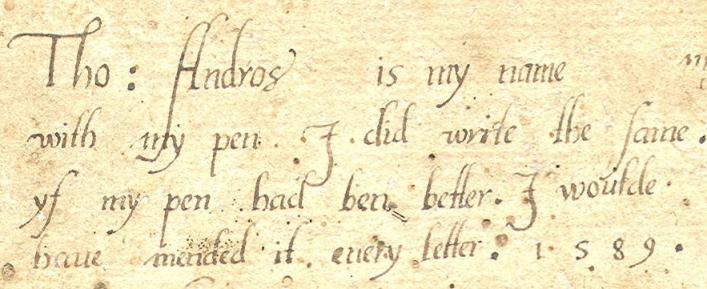 Tho: Andros is my name
with my pen I did write the same.
yf my pen had ben better. I woulde
haue mended it euery letter. 1589.